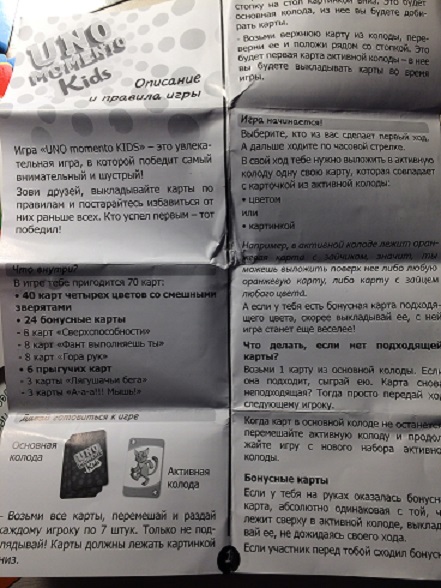 UNO
MOMENTO
Kids
Описание
и правила игры
Игра «UNO momento KIDS» – это увлека-
тельная игра, в которой победит самый
внимательный и шустрый!
Зови друзей, выкладывайте карты по
правилам и постарайтесь избавиться от
них раньше всех. Кто успел первым – тот
победил!
Что внутри?
В игре тебе пригодится 70 карт:
• 40 карт четырех цветов со смешными
зверятами
• 24 бонусные карты
- 8 карт «Сверхспособности»
- 8 карт «Фант выполняешь ты»
- 8 карт «Гора рук»
• 6 прыгучих карт
- 3 карты «Лягушачьи бега»
- 3 карты «А-а-а!!! Мышь!»
Давай готовиться к игре
Основная
колода
UNO
MOMENTO
Kids
Активная
колода
- Возьми все карты, перемешай и раздай
каждому игроку по 7 штук. Только не под-
глядывай! Карты должны лежать картинкой
низ.
стопку на стол картинкой вниз. Это будет
основная колода, из нее вы будете доби-
рать карты.
- Возьми верхнюю карту из колоды, пере-
верни ее и положи рядом со стопкой. Это
будет первая карта активной колоды – в нее
вы будете выкладывать карты во время
игры.
Игра начинается!
Выберите, кто из вас сделает первый ход.
А дальше ходите по часовой стрелке.
В свой ход тебе нужно выложить в активную
колоду одну свою карту, которая совпадает
с карточкой из активной колоды:
• цветом
или
• картинкой
Например, в активной колоде лежит оран-
жевая карта с зайчиком, значит, ты
можешь выложить поверх нее либо любую
оранжевую карту, либо карту с зайцем
любого цвета.
А если у тебя есть бонусная карта подходя-
щего цвета, скорее выкладывай ее, с ней
игра станет еще веселее!
Что делать, если нет подходящей
карты?
Возьми 1 карту из основной колоды. Если
она подходит, сыграй ею. Карта снова
неподходящая? Тогда просто передай ход
следующему игроку.
Когда карт в основной колоде не останется
перемешайте активную колоду и продол-
жайте игру с нового набора активно
колоды.
Бонусные карты
Если у тебя на руках оказалась бонусн
карта, абсолютно одинаковая с той, ч
лежит сверху в активной колоде, выклад
вай ее, не дожидаясь своего хода.
Если участник перед тобой сходил бонусн